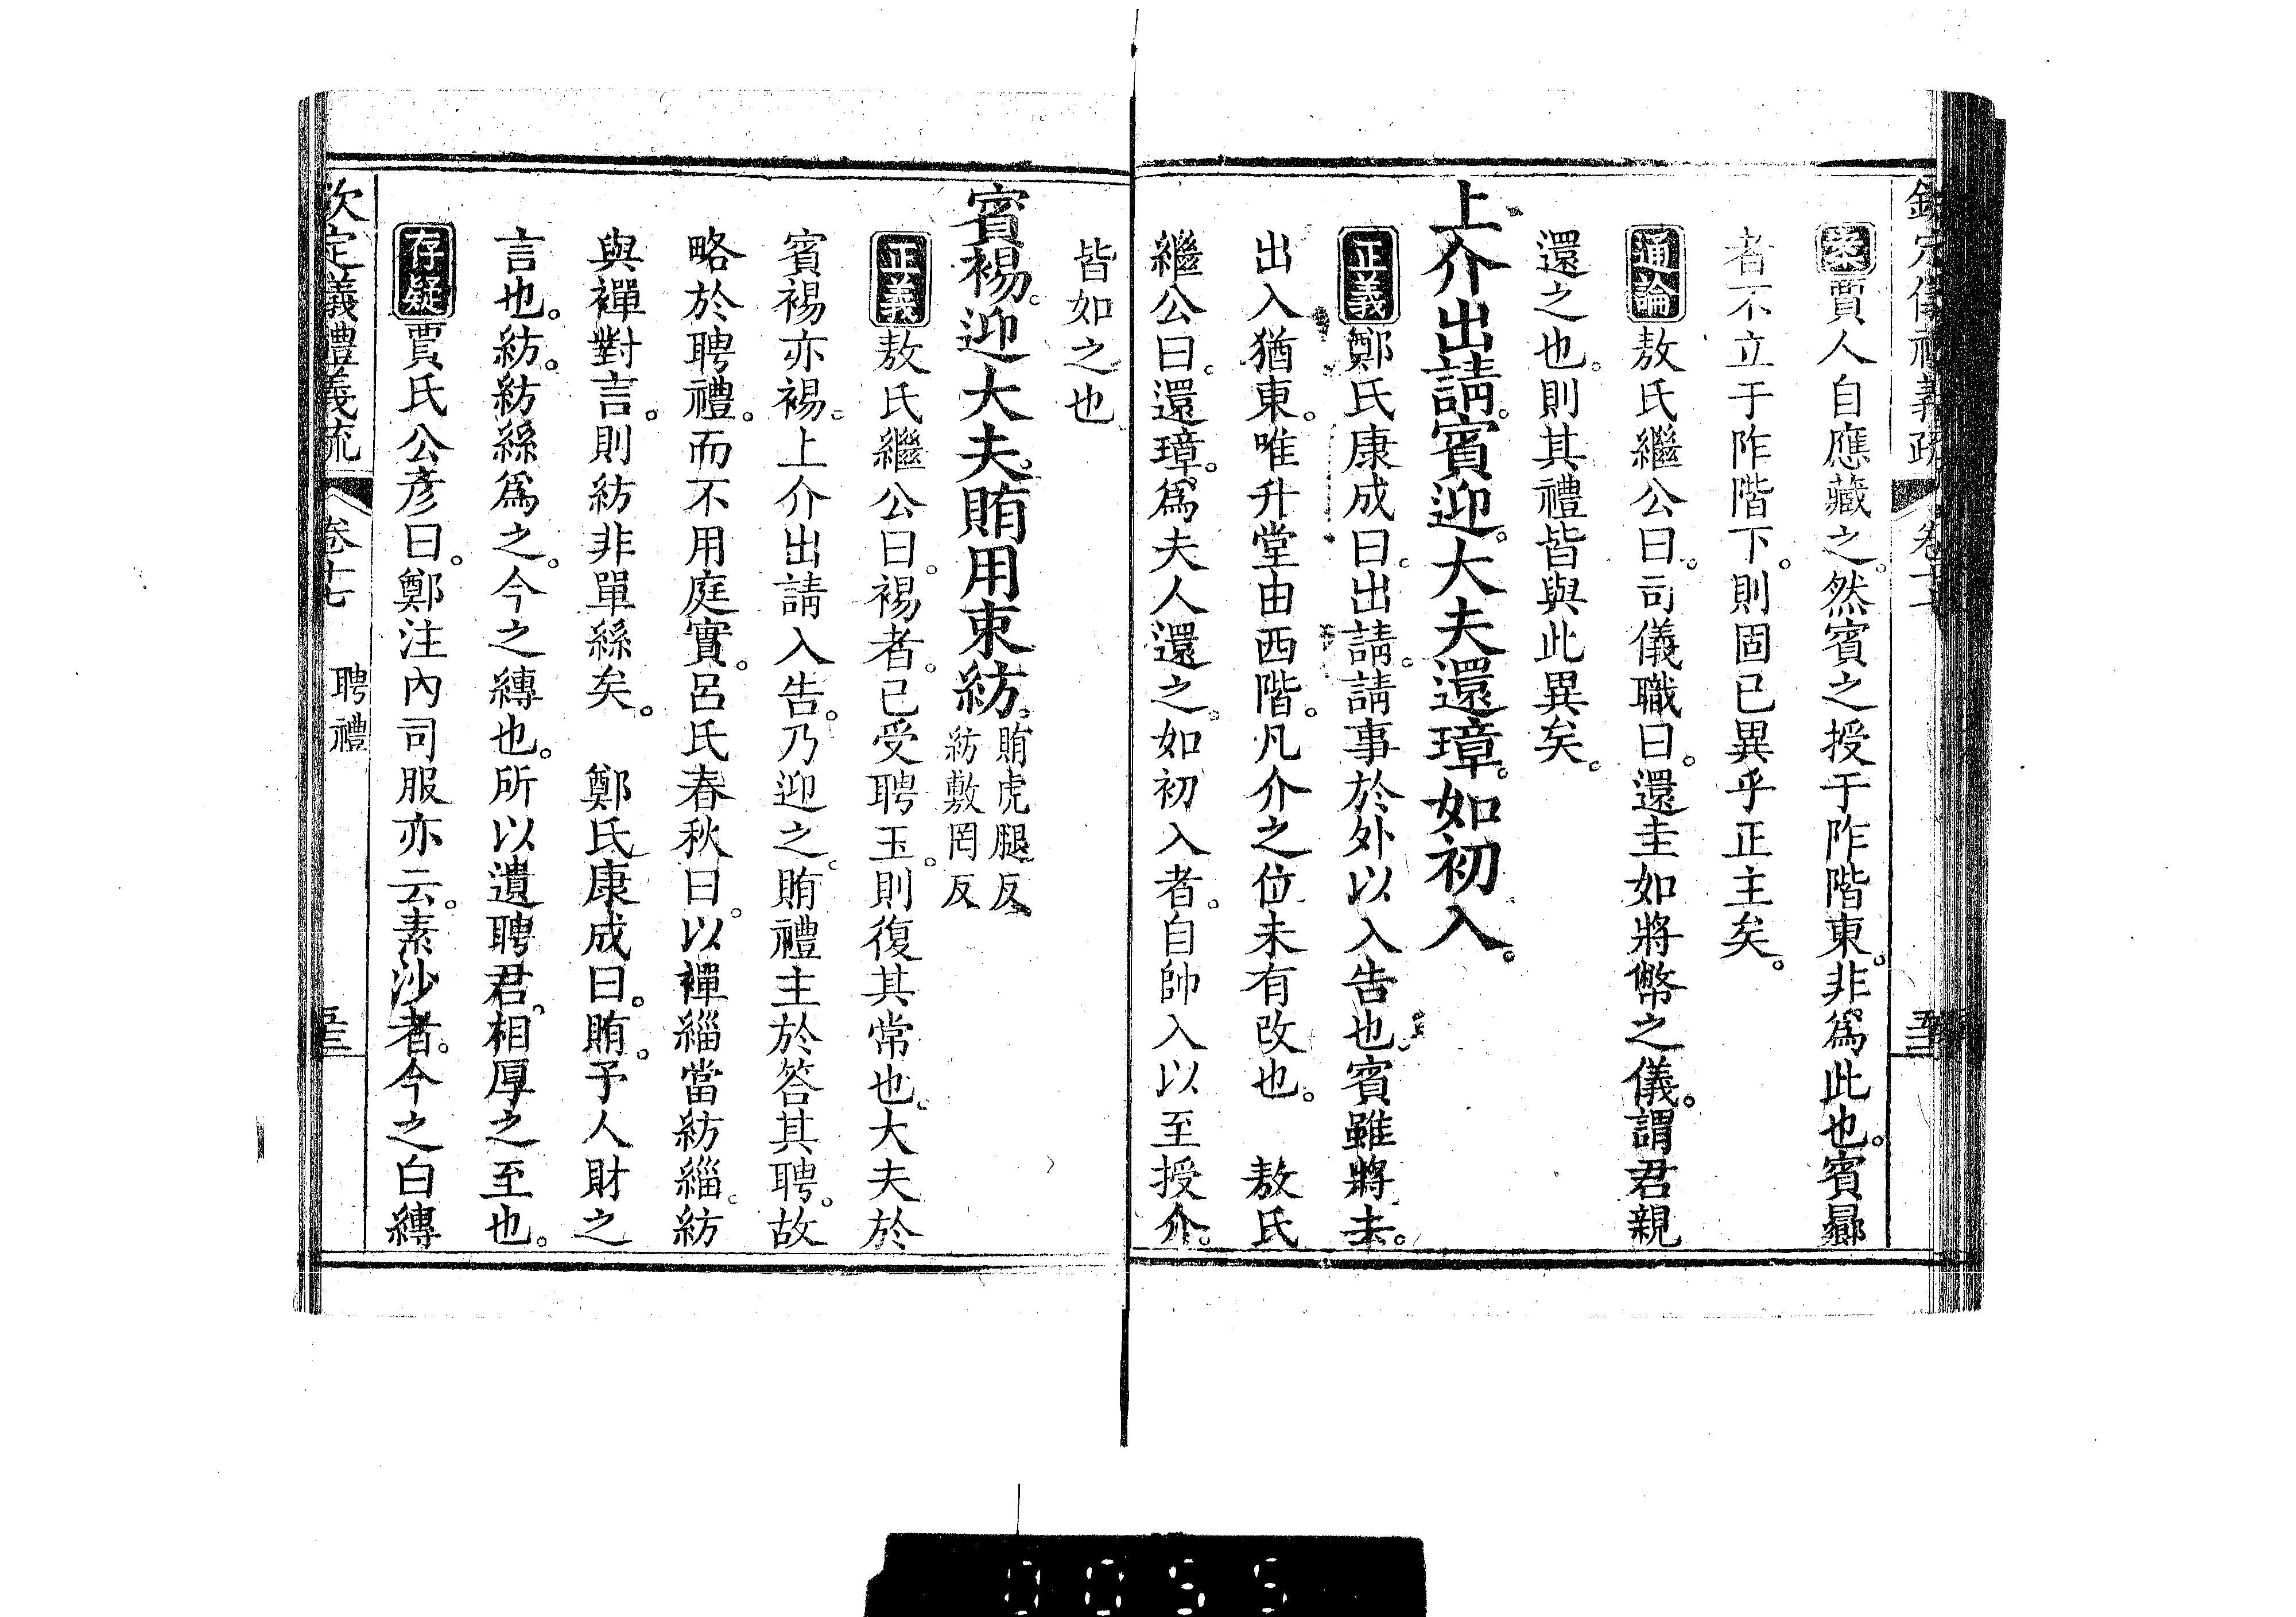 欽定儀禮義疏 卷十七 五三
案賈人自應藏之。然賓之授于阼階東。非為此也。賓曏
者不立于阼階下。則固已異乎正主矣。
通論敖氏繼公曰。司儀職曰。還圭如將幣之儀。謂君親
還之也。則其禮皆與此異矣。
上介出請。賓迎。大夫還璋。如初入。
正義鄭氏康成曰。出請。請事於外以入告也。賓雖將去。
出入猶東。唯升堂由西階。凡介之位未有改也。 敖氏
繼公曰。還璋。為夫人還之。如初入者。自帥入以至授介。
皆如之也
賓裼。迎大夫。賄用束紡。賄虎腿反
紡敷罔反
正義敖氏繼公曰。裼者。已受聘玉。則復其常也。大夫於
賓裼亦裼。上介出請入告。乃迎之。賄禮主於答其聘。故
略於聘禮。而不用庭實。呂氏春秋曰。以襌緇當紡緇。紡
與襌對言。則紡非單絲矣。 鄭氏康成曰。賄。予人財之
言也。紡。紡絲為之。今之縳也。所以遺聘君。相厚之至也。
存疑賈氏公彥曰。鄭注內司服亦云。素沙者。今之白縳
欽定儀禮義疏 卷十七 聘禮 五三
0055